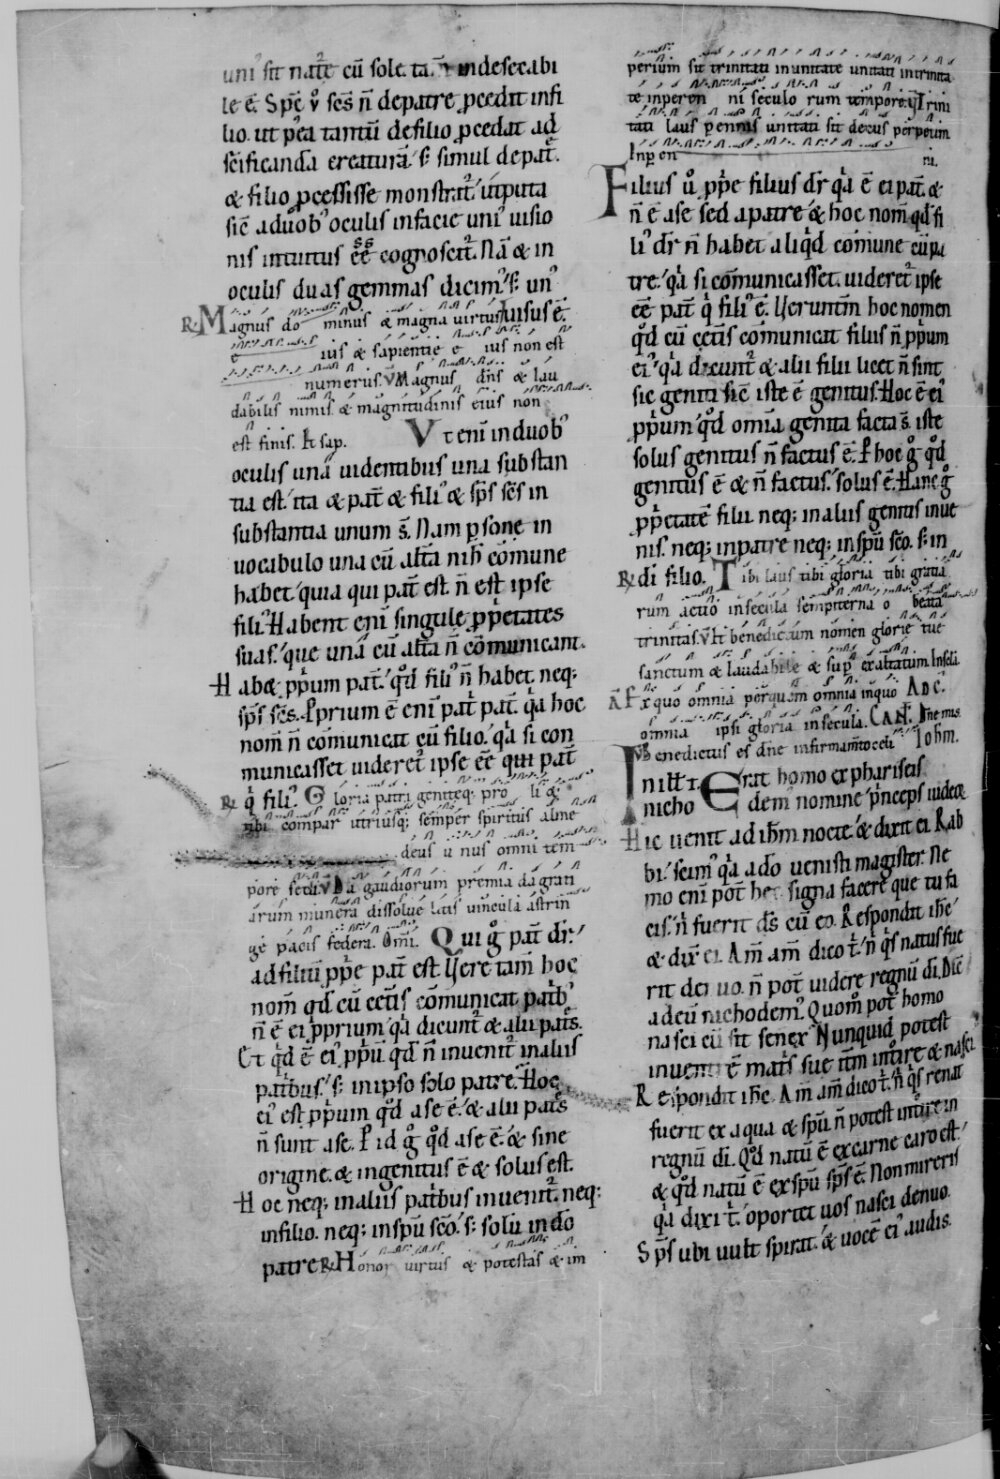 uni᾽ sit natr̄e cū sole. tam̄ indesecabi
le ē. Sp̄c ů sc̄s n̄ depatre ꝓcedit infi
lio. ut p̄ea tantū defilio ꝓcedat ad
sc̄ificandā creaturā. s; simul depat᷑.
& filio ꝓcessisse monstrat᷑. utputa
sic̄ aduob᾽ oculis infacie uni᾽ uisio
nis intuitus ēē cognoscit᷑. Nā & in
oculis duas gemmas dicim᾽. s; un᾽
uisus ē.
℟ Magnus do minus & magna uirtus
e ius & sapientie e ius non est
numerus. ℣ Magnus dn̄s & lau
dabilis nimis & magnitudinis eius non
est finis. & sap. Vt eni in duob᾽
oculis unā uidentibus una substan
tia est. ita & pat̄ & fili᾽ & sp̄s sc̄s in
substantia unum s̄. Nam ꝑsone in
uocabulo una cū alt̄a nih̄ cōmune
habet. quia qui pat̄ est. n̄ est ipse
fili᾽. Habent eni singule ꝓp̄etates
suas. que unā cū alt̄a n̄ cōmunicant.
Hab& ꝓp̄um pat̄. qd̊ fili᾽ n̄ habet. neq;
sp̄s sc̄s. Ꝓprium ē eni pat̄ pat̄. qa hoc
nom̄ n̄ cōmunicat cū filio. qa si con
municasset uideret᷑ ipse ēē qui pat̄
q̇ fili᾽. ℟ Gloria patri genitęq; pro li &
tibi compar utriusq; semper spiritus alme
deus u nus omni tem
pore secli. ℣ Da gaudiorum premia da grati
arum munera dissolue litis uincula astrin
ge pacis federa. Om̄i. Qui g̊ pat̄ dr̄.
ad filiū ꝓp̄e pat̄ est. Vere tam̄ hoc
nom̄ qd̄ cū cet̄is cōmunicat patrib᾽
n̄ ē ei ꝓprium. qa dicunt᷑ & alii pat̄s.
Et qd̄ ē ei᾽ ꝓp̄ū qd̄ n̄ inuenit᷑ in aliis
pat̄bus. s; in ipso solo patre. Hoc
ei᾽ est ꝓp̄um qd̊ a se ē. & alii pat̄s
n̄ sunt a se. P id g̊ qd̊ a se ē. & sine
origine. & ingenitus ē & solus est.
Hoc neq; in aliis pat̄bus inuenit᷑. neq;
in filio. neq; in sp̄ū sc̄o. s; solū in dō
patre ℟ Honor uirtus & potestas & im
perium sit trinitati in unitate unitati in trinita
te inperen ni seculo rum tempore. ℣ Trini
tati laus perennis unitati sit decus perpetim
Inperen ni.
Filius ů ꝓp̄e filius dr̄ qa ē ei pat̄. &
n̄ ē a se sed a patre & hoc nom̄ qd̄ fi
li᾽ dr̄ n̄ habet aliqd̄ cōmune cū pa
tre. qa si cōmunicasset. uideret᷑ ipse
ēē pat̄ q̇ fili᾽ ē. Verunt̄m hoc nomen
qd̊ cū cet̄is cōmunicat filius n̄ ꝓp̄um
ei᾽. qa dicunt᷑ & alii filii licet n̄ sint
sic geniti sic̄ iste ē genitus. Hoc ē ei᾽
ꝓp̄um qd̊ omīa genita facta s̄. iste
solus genitus n̄ factus ē. P hoc g̊ qd̊
genitus ē & n̄ factus. solus ē. Hanc g̊
ꝓp̄etatē filii neq; in aliis genitis inue
nis. neq; in patre neq; in sp̄ū sc̄o. s; in
di filio. ℟ Tibi laus tibi gloria tibi gratia
rum actio in secula sempiterna o beata
trinitas. ℣ Et benedictum nomen glorie tue
sanctum & laudabile & sup̄ exaltatum. In sclā
A Ex quo omnia per quem omnia in quo
omnia ipsi gloria in secula.
℣ Benedictus es dn̄e in firmam̄to celi Iohm̄.
In illt̄. Erat homo ex phariseis
nicho dem᾽ nomine p̄nceps iudeoꝝ
Hic uenit ad ih̄m nocte. & dixit ei. Rab
bi. scim᾽ qa a dō uenisti magister. Ne
mo eni pot̄ hec signa facere que tu fa
cis. n̄ fuerit ds̄ cū eo. Respondit ih̄c
& dix̄ ei. Am̄ am̄ dico t̄. n̄ q̄s natus fue
rit denuo. n̄ pot̄ uidere regnū di. Dic̄
ad eū nichodem᾽. Quom̊ pot̄ homo
nasci cū sit senex. Nunquid potest
in uentrē mat̄s sue it̄m int̊ire & nasci
Respondit ih̄c. Am̄ am̄ dico t̄. n̄ q̄s renat᾽
fuerit ex aqua & sp̄ū n̄ potest int̊ire in
regnū di. Qd̊ natū ē ex carne caro est.
& qd̊ natū ē ex sp̄ū sp̄s ē. Non mireris
qa dixi t̄. oportet uos nasci denuo.
Sp̄s ubi uult spirat. & uocē ei᾽ audis.